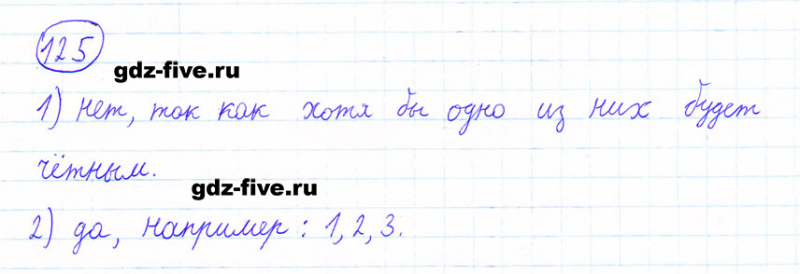 125
gdz-five.ru
1) нет, так как хотя бы одно из них будет
чётным.
gdz-five.ru
2) да, например: 1, 2, 3.